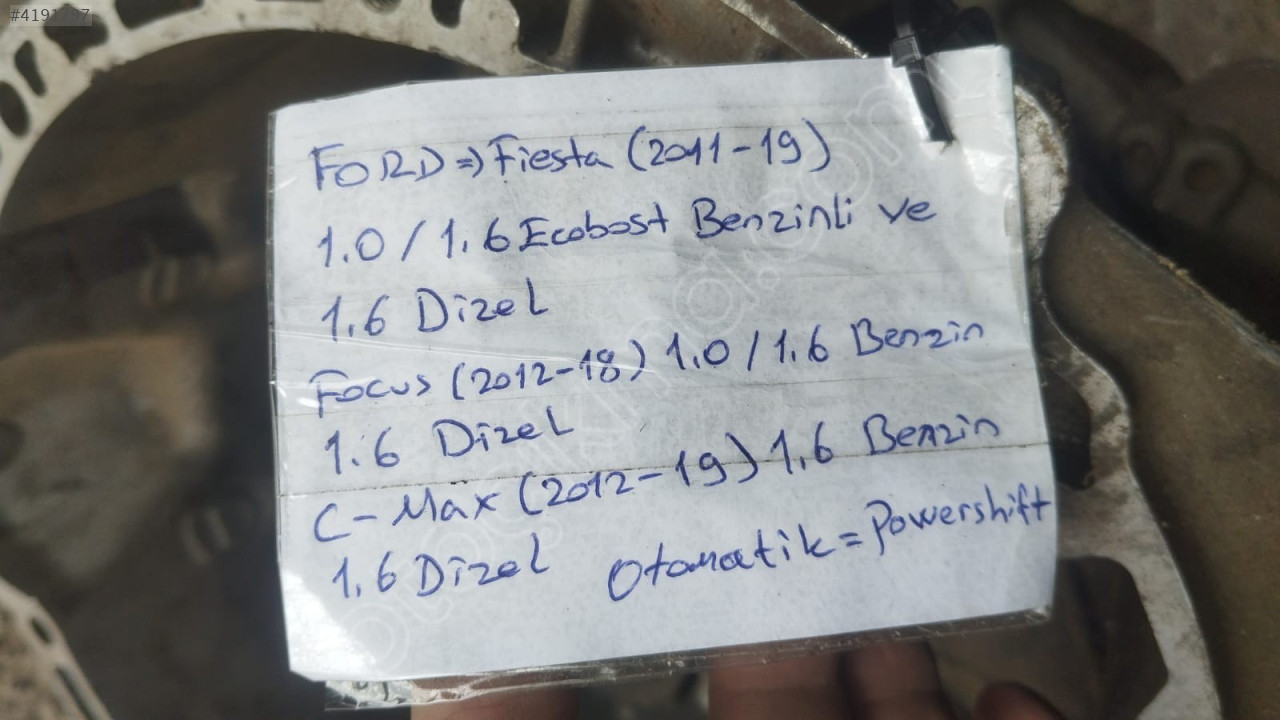 FORD => Fiesta (2011-19)
1.0 / 1.6 Ecobost Benzinli ve
1.6 Dizel
Focus (2012-18) 1.0 / 1.6 Benzin
1.6 Dizel
C-Max (2012-19) 1.6 Benzin
1.6 Dizel Otomatik = Powershift